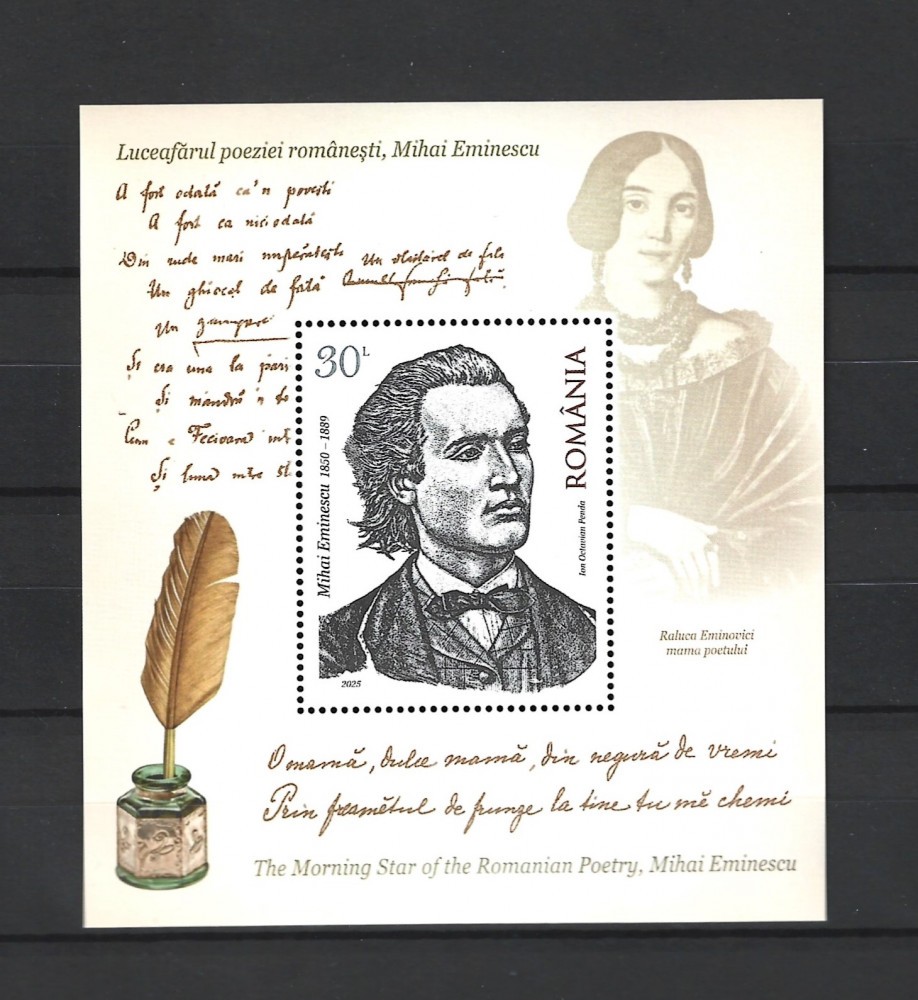 Luceafărul poeziei românești, Mihai Eminescu
A fost odată ca'n povești
A fost ca niciodată
Din rude mari împărătești Un vlăstărel de
Un ghiocel de fată
Un
Și era una la pări
Și mândră n to
Cum e Fecioara
Și luna între
30L
ROMÂNIA
Mihai Eminescu 1850 – 1889
Ion Octavian Penda
2025
Raluca Eminovici
mama poetului
O mamă, dulce mamă, din negură de vremi
Prin freamătul de frunze la tine tu mĕ chemi
The Morning Star of the Romanian Poetry, Mihai Eminescu